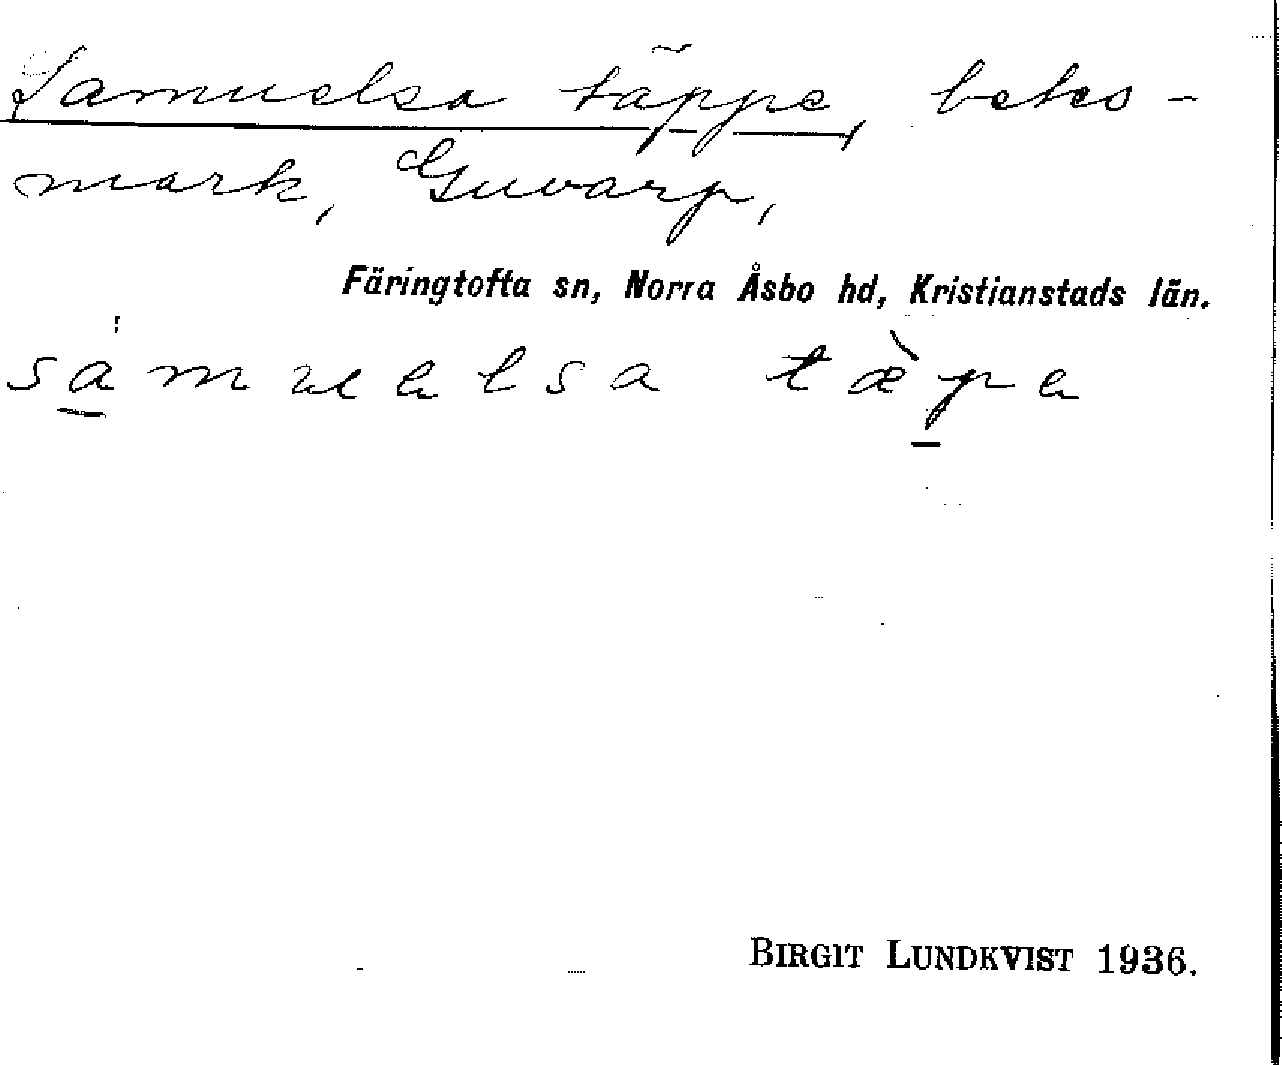 Samuelsa täppe, betes-
mark, Guvarp,
Färingtofta sn, Norra Åsbo hd, Kristianstads län.
sa̱muelsa tæ̀p̱e
BIRGIT LUNDKVIST 1936.